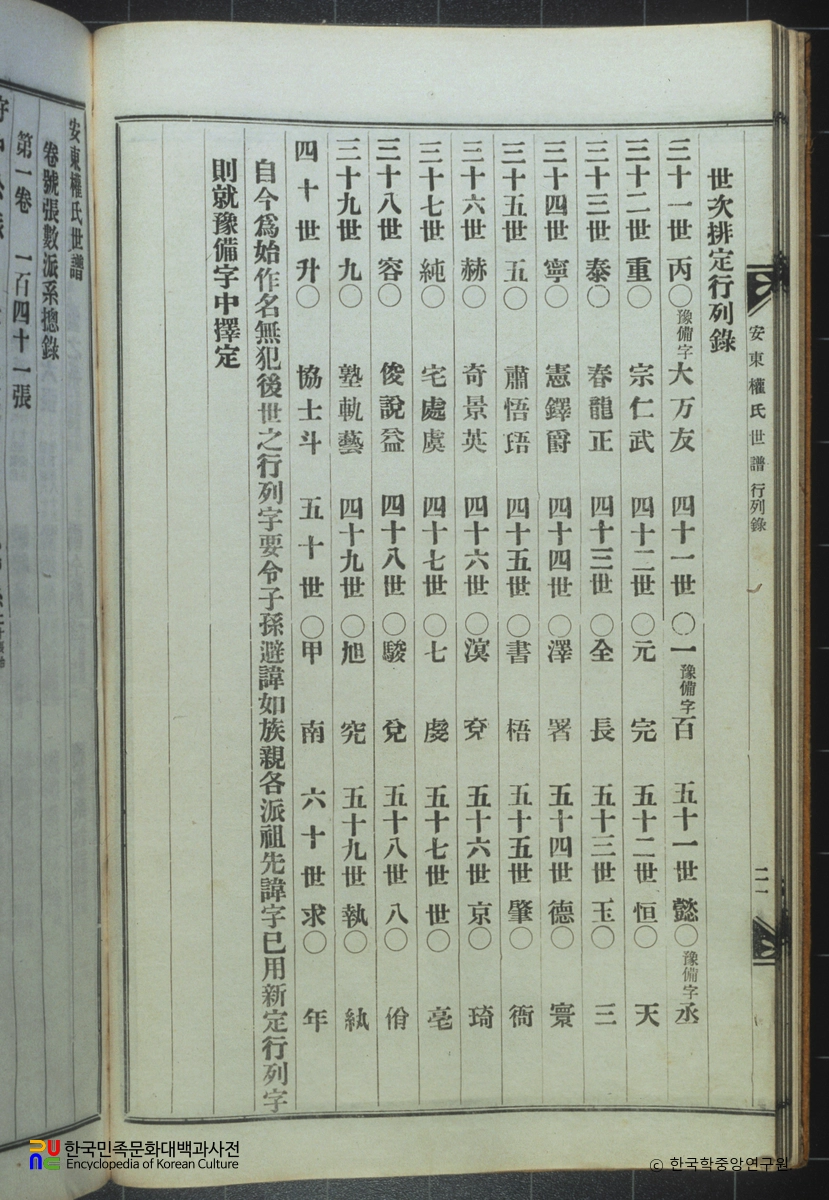 安東權氏世譜 行列錄
二一
世次排定行列錄
三十一世 丙○豫備字大万友 四十一世 ○一豫備字百 五十一世 懿○豫備字丞
三十二世 重○ 宗仁武 四十二世 ○元 完 五十二世 恒○ 天
三十三世 泰○ 春龍正 四十三世 ○全 長 五十三世 玉○ 三
三十四世 寧○ 憲鐸爵 四十四世 ○澤 署 五十四世 德○ 寰
三十五世 五○ 肅悟珸 四十五世 ○書 梧 五十五世 肇○ 衙
三十六世 赫○ 奇景英 四十六世 ○潩 兗 五十六世 京○ 琦
三十七世 純○ 宅處虞 四十七世 ○七 虔 五十七世 世○ 亳
三十八世 容○ 俊說益 四十八世 ○駿 兌 五十八世 八○ 佾
三十九世 九○ 塾軌藝 四十九世 ○旭 究 五十九世 執○ 紈
四十世 升○ 協士斗 五十世 ○甲 南 六十世 求○ 年
自今爲始作名無犯後世之行列字要令子孫避諱如族親各派祖先諱字已用新定行列字
則就豫備字中擇定
安東權氏世譜
卷號張數派系摠錄
第一卷 一百四十一張
한국민족문화대백과사전
Encyclopedia of Korean Culture
© 한국학중앙연구원